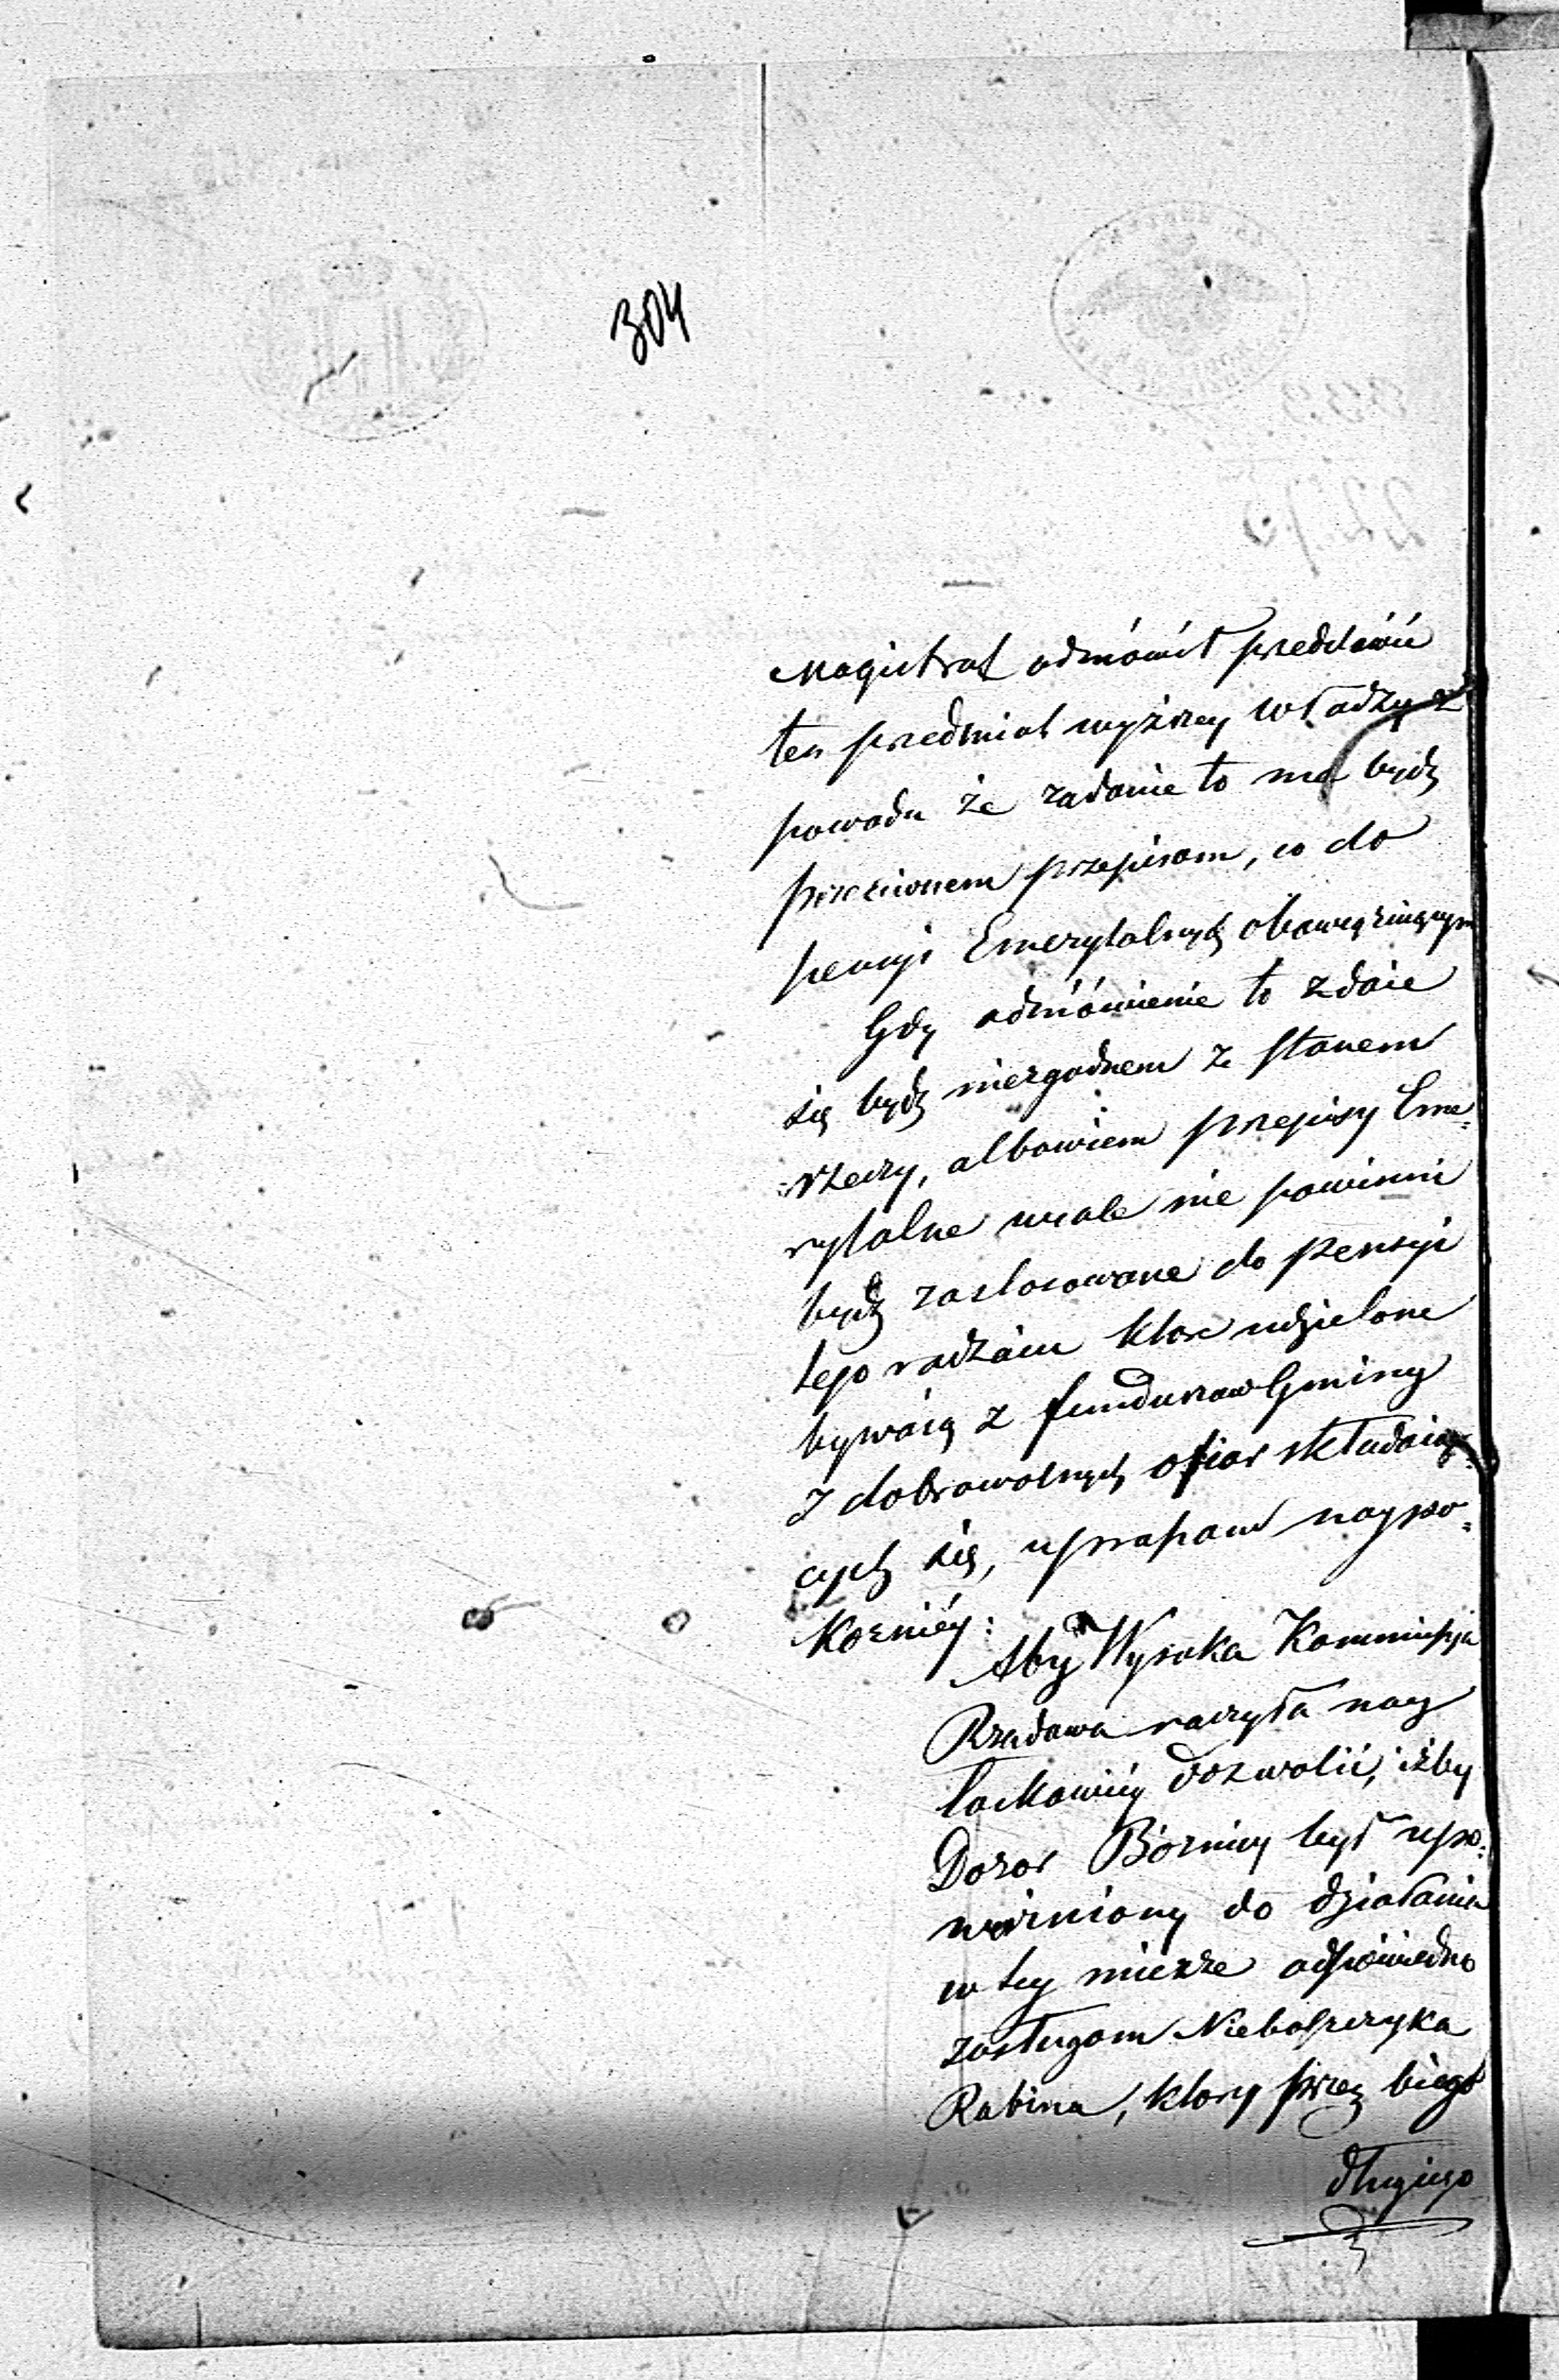 304
Magistrat odmówił przedstawić
ten przedmiot wyższey władzy z
powodu że żadanie to ma bydź
przeciwnem przepisom, co do
pensyi Emerytalnych obowiązuiącym
Gdy odmówienie to zdaie
się bydź niezgodnem ze stanem
rzeczy, albowiem przepisy Eme=
rytalne wcale nie powinni
bydź zastosowane do pensyi
tego rodzaiu które udzielone
bywaią z funduszow Gminy
z dobrowolnych ofiar składaią=
cych się, upraszam naypo=
korniéy:
Aby Wysoka Kommissya
Rządowa raczyła nay
łaskawiéy dozwolić, iżby
Dozor Bóżnicy był upo=
ważniony do działania
w tey mierze odpowiedno
zasługom Nieboszczyka
Rabina, ktory przez biegł
długiego